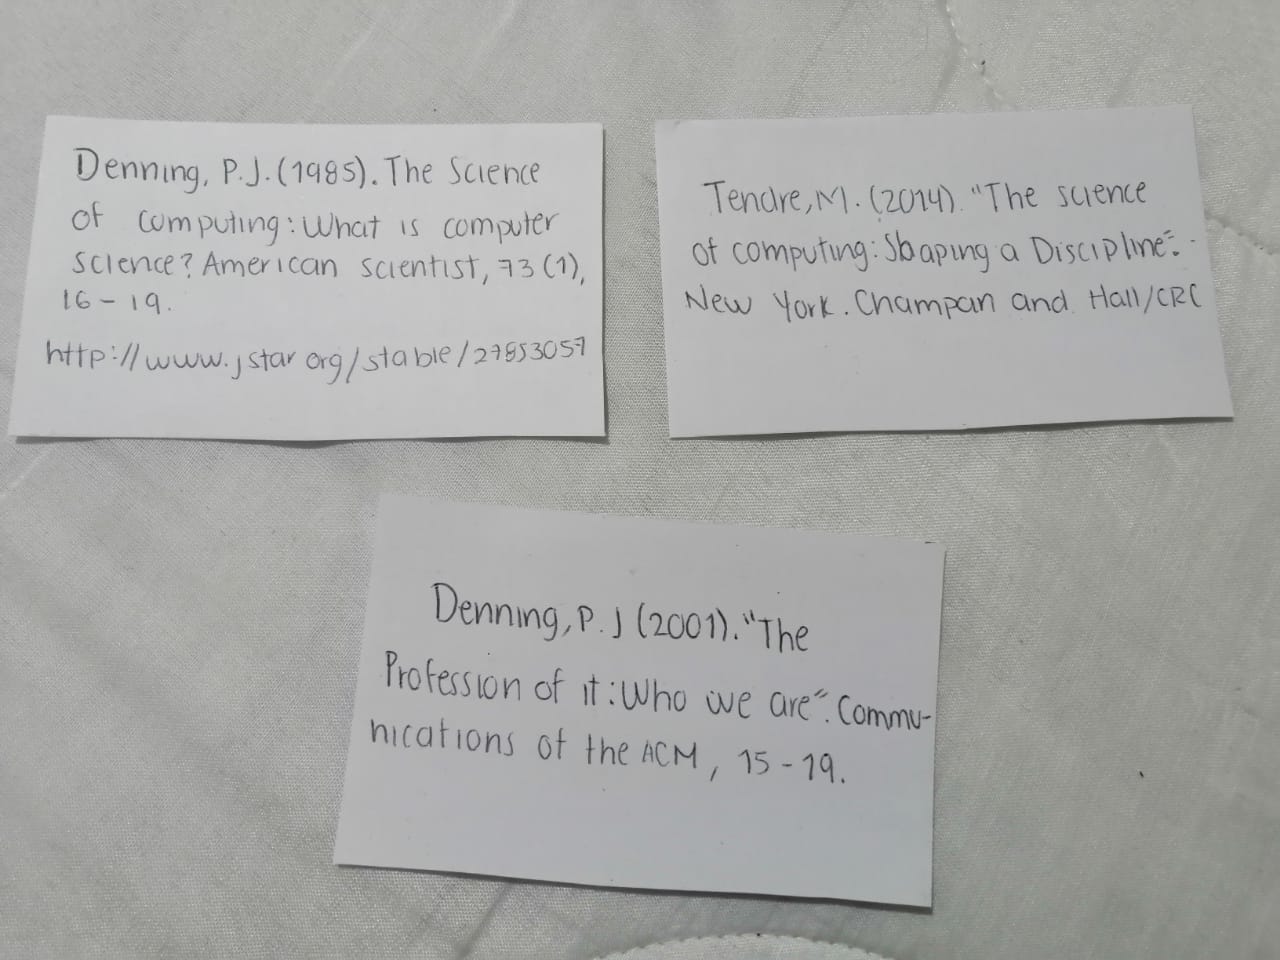 Denning, P.J. (1985). The Science
of computing: What is computer
science? American scientist, 73 (1),
16 - 19.
http://www.jstar org/stable/27853057
Tendre, M. (2014). "The science
of computing: Shaping a Discipline".
New York. Champan and Hall/CRC
Denning, P. J (2001). "The
Profession of it: Who we are". Commu-
nications of the ACM, 15 - 19.